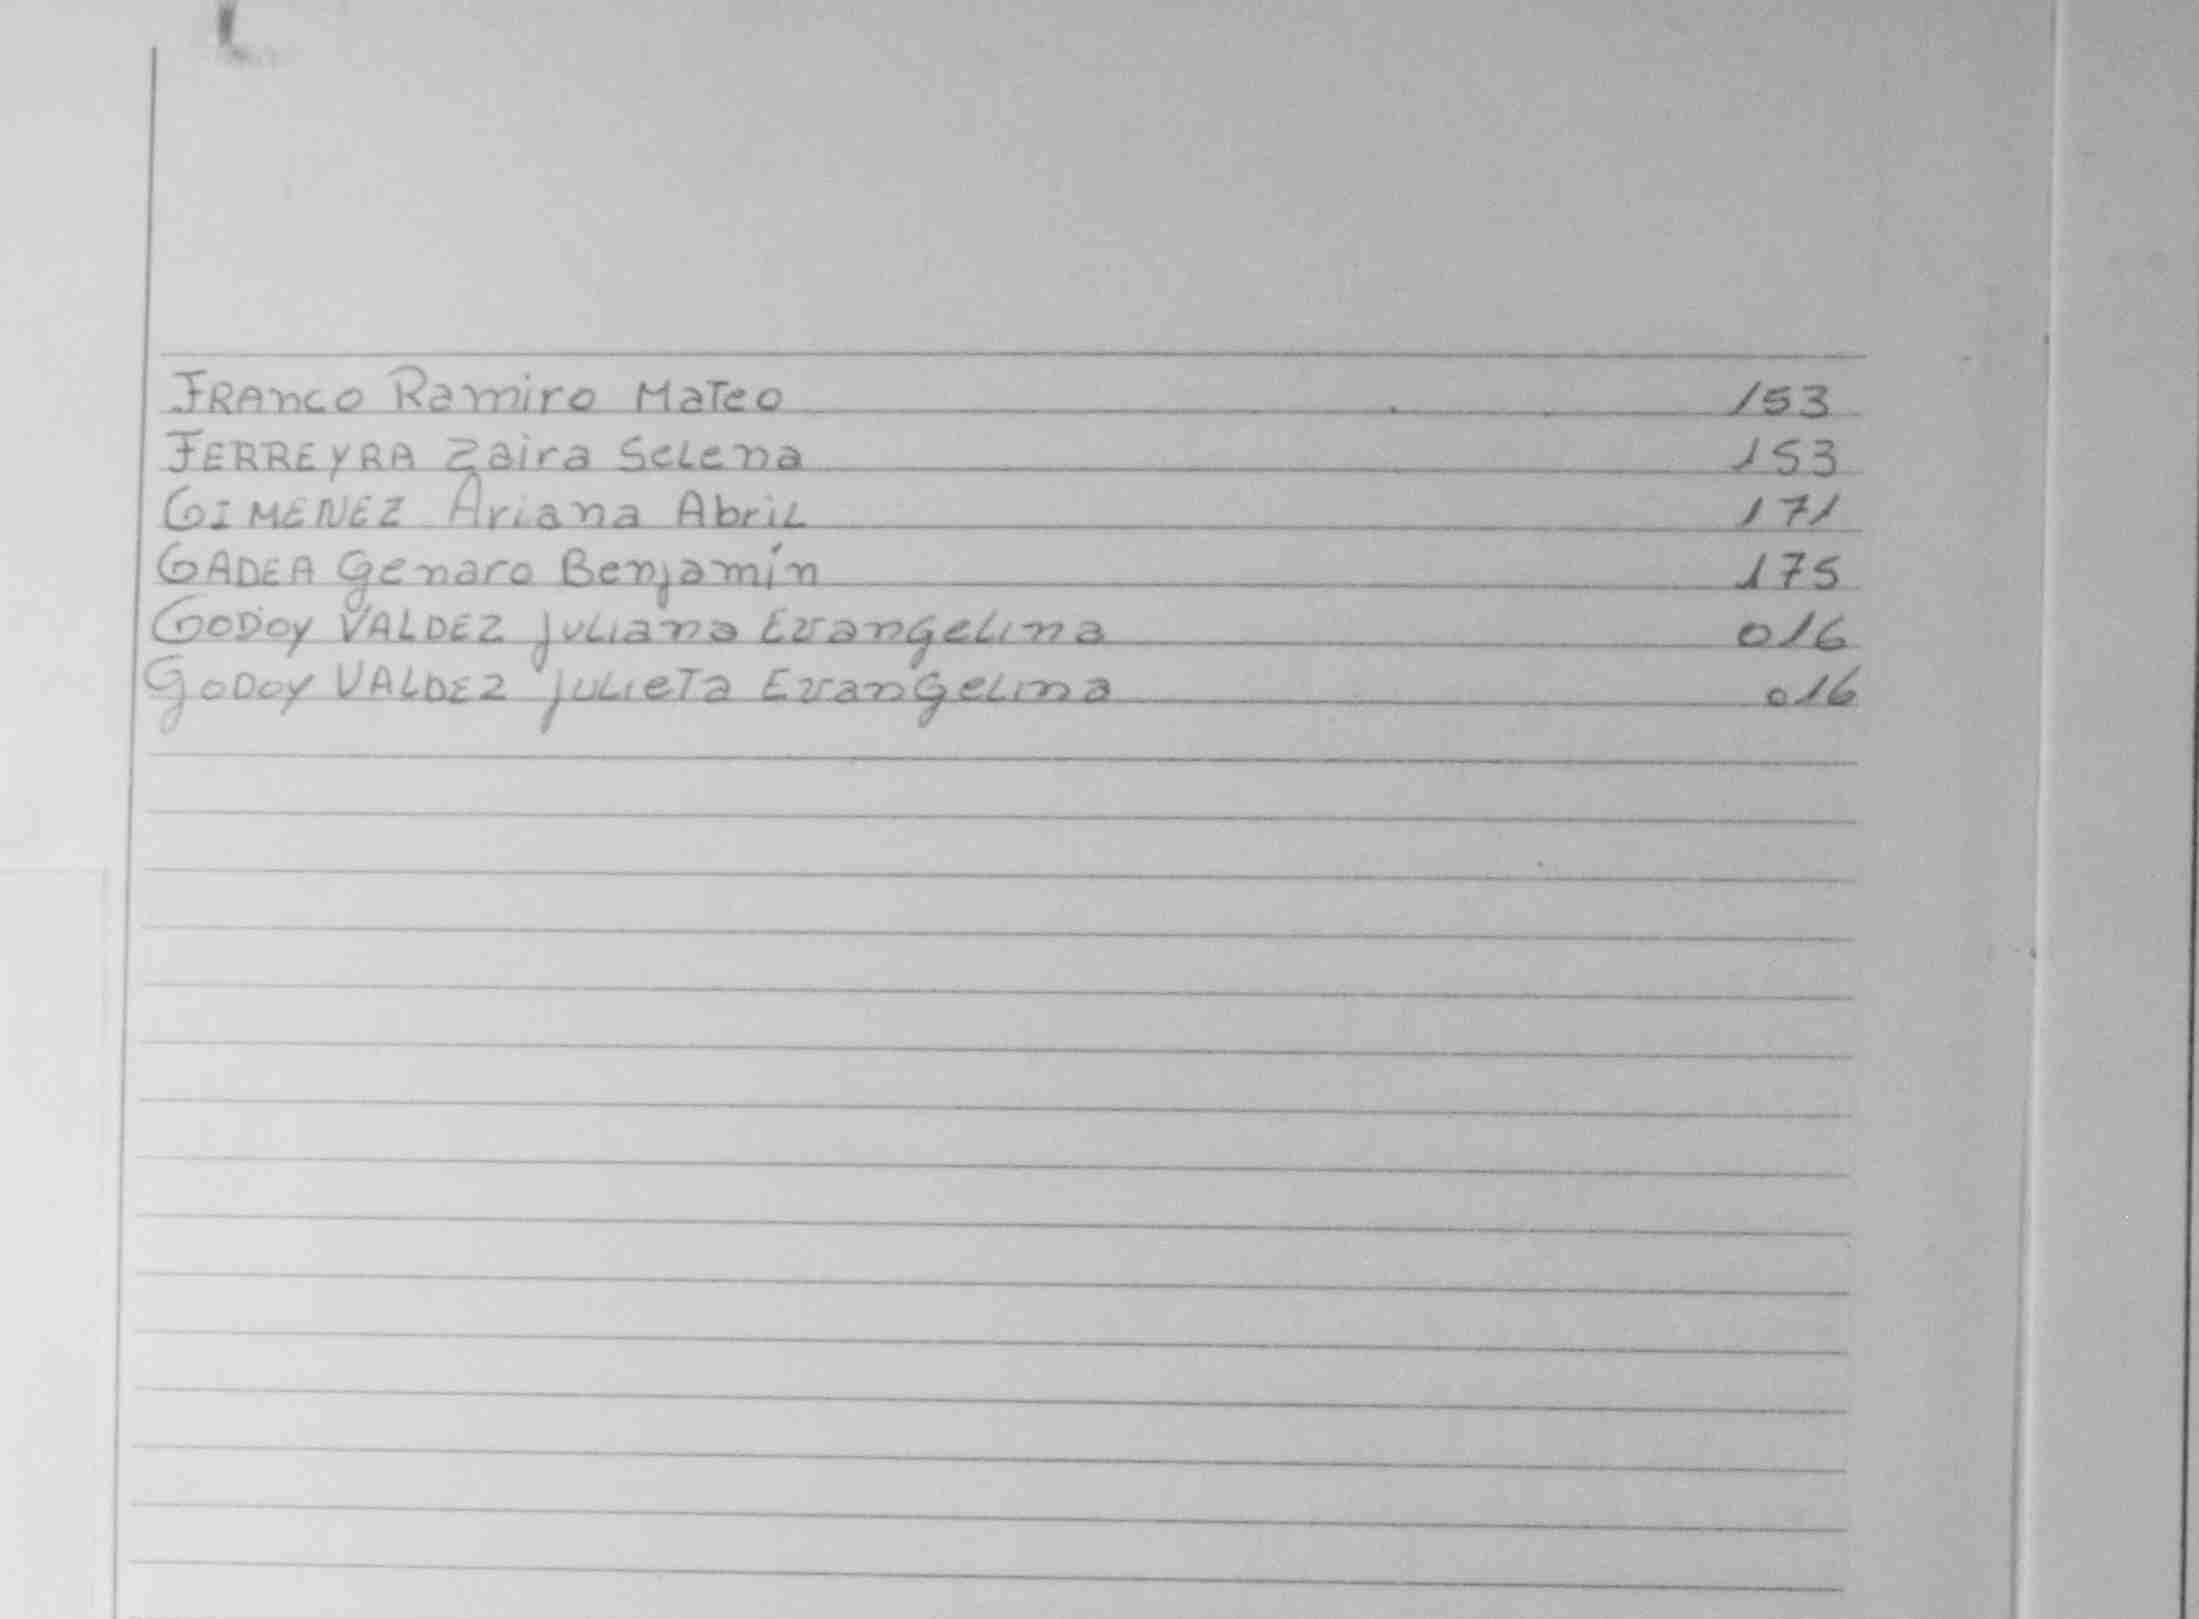 FRANCO Ramiro Mateo 153
FERREYRA Zaira Selena 153
GIMENEZ Ariana Abril 171
GADEA Genaro Benjamín 175
GODOY VALDEZ Juliana Evangelina 016
GODOY VALDEZ Julieta Evangelina 016